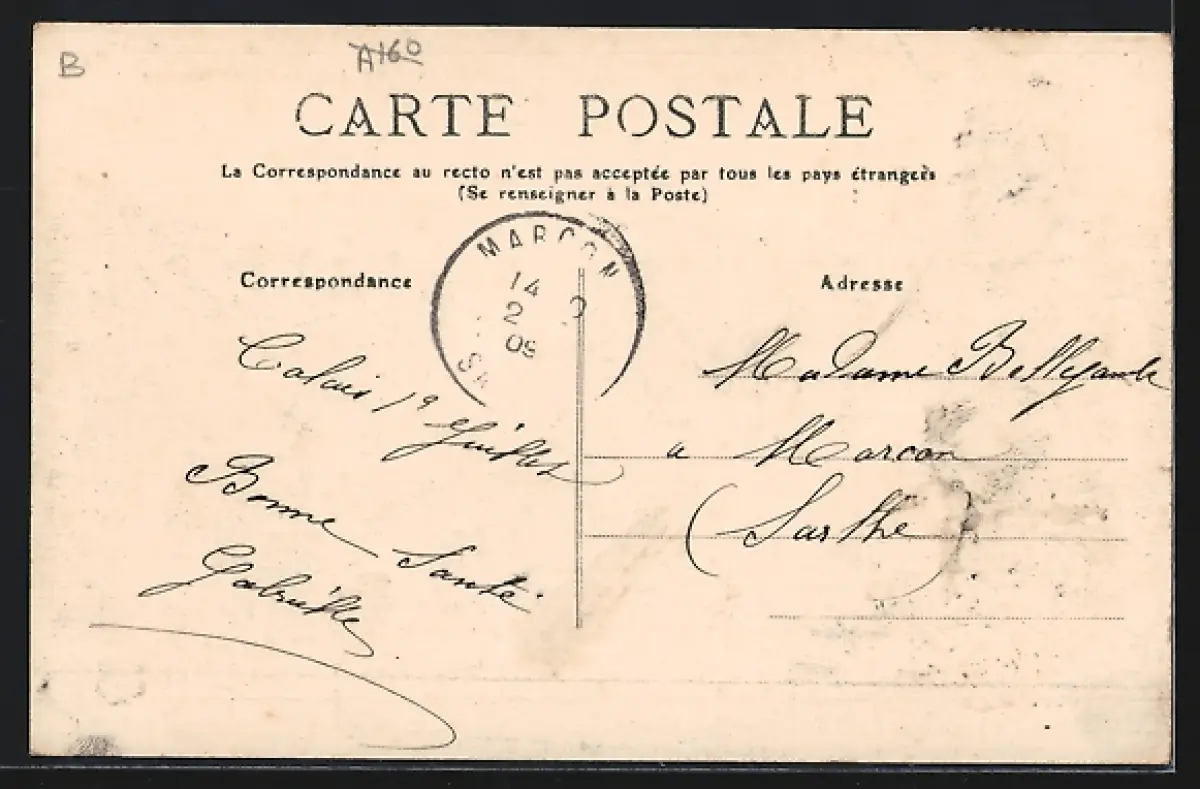 B
A160
CARTE POSTALE
La Correspondance au recto n'est pas acceptée par tous les pays étrangers
(Se renseigner à la Poste)
MARCON
14
2
09
SA
Correspondance
Adresse
Calais 19 Juillet
Bonne Santé
Gabrielle
Madame Bellegante
a Marcon
(Sarthe)